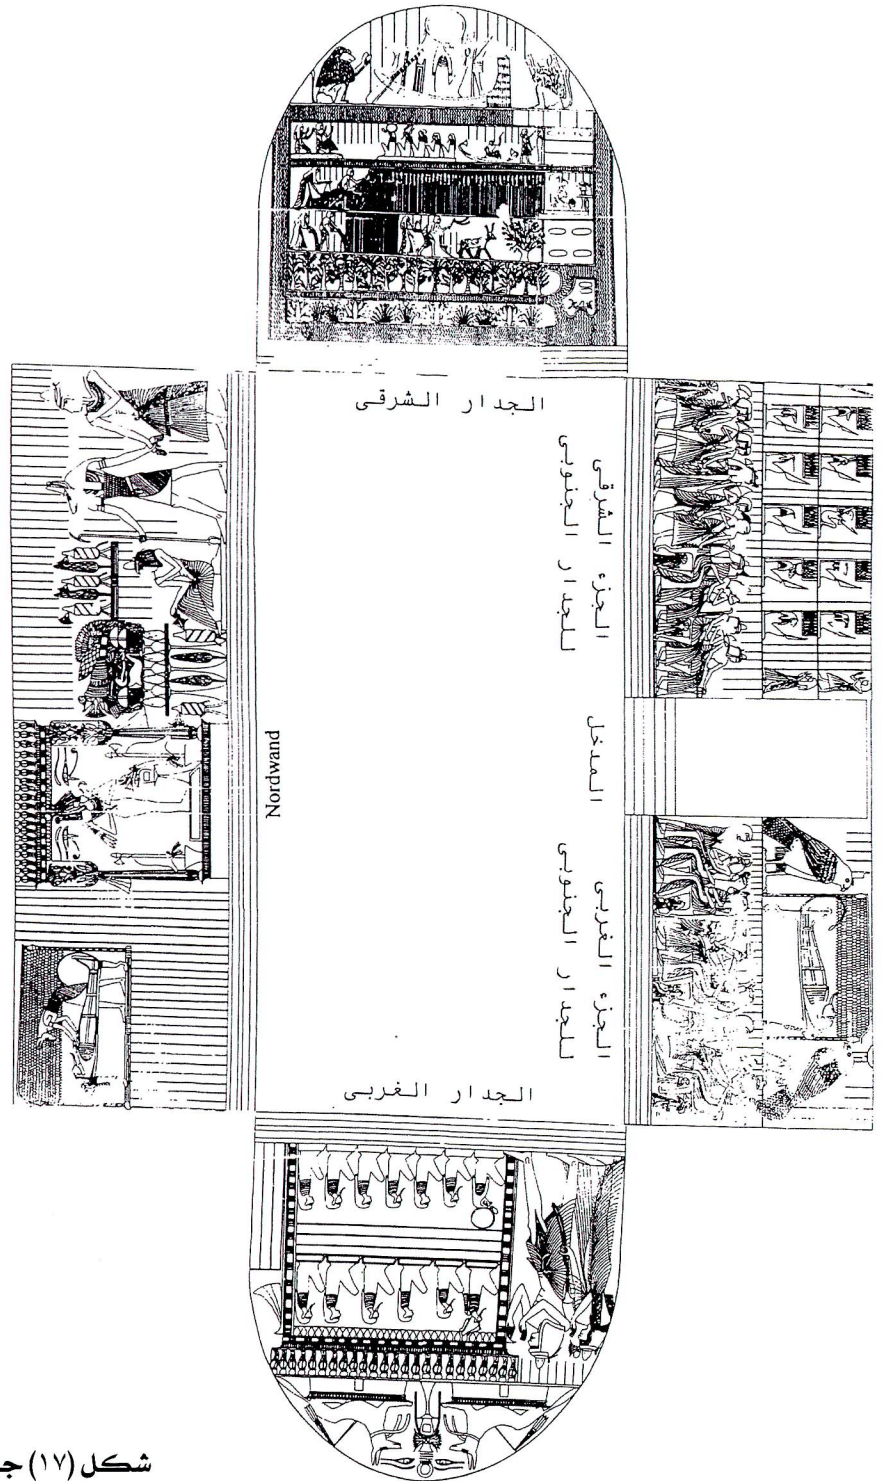 الجدار الشرقى
الجزء الشرقى
للجدار الجنوبى
المدخل
Nordwand
الجزء الغربى
للجدار الجنوبى
الجدار الغربى
شكل (١٧) ج